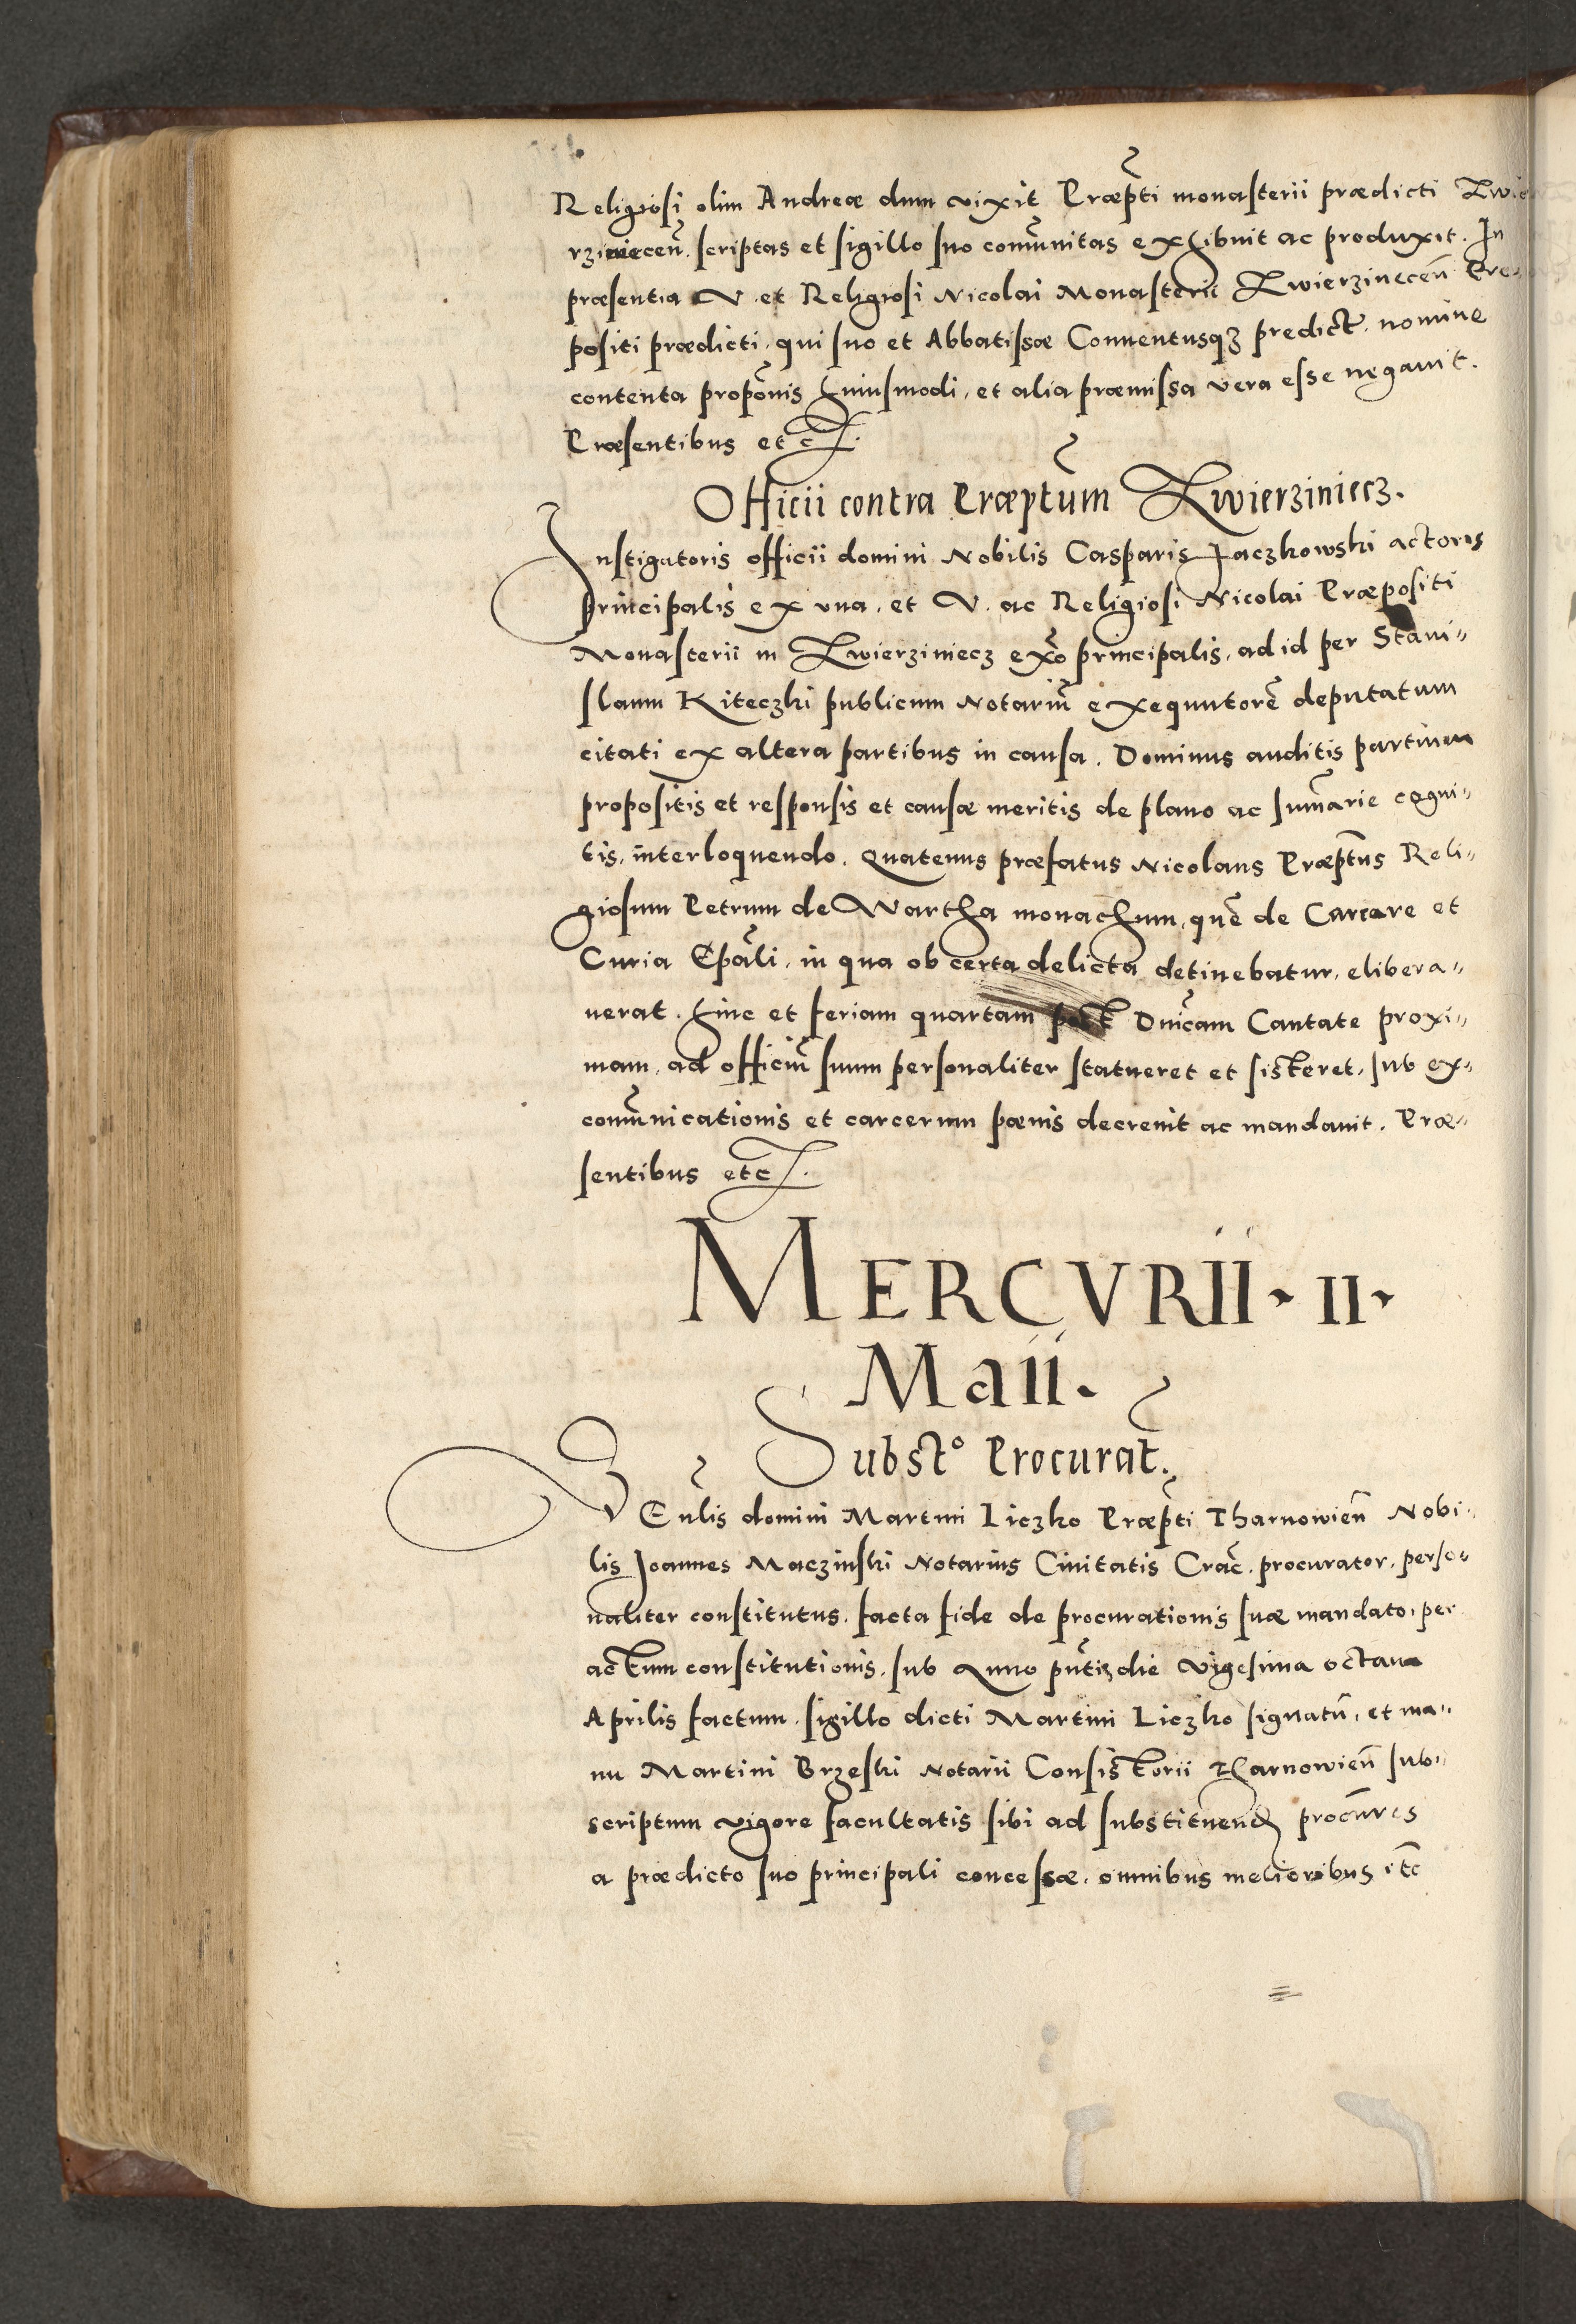 Religiosi olim Andreæ dum vixit Præpti monasterii prædicti Zwie
rziniecen̄. scriptas et sigillo suo com̄unitas exhibuit ac produxit. In
præsentia V. et Religiosi Nicolai Monasterii Zwierzinecen̄ Pre-
positi prædicti, qui suo et Abbatissæ Conuentusqʒ predict. nomine
contenta propōnis huiusmodi, et alia præmissa vera esse negauit.
Præsentibus etc.
Officii contra Præptum Zwierziniecz.
Instigatoris officii domini Nobilis Casparis Jaczkowski actoris
principalis ex vna, et V. ac Religiosi Nicolai Præpositi
Monasterii in Zwierziniecz exo principalis, ad id per Stani„
slaum Kiteczki publicum Notariū exequutorē deputatum
citati ex altera partibus in causa. Dominus auditis partium
propositis et responsis et causæ meritis de plano ac sum̄arie cogni„
tis, interloquendo. Quatenus præfatus Nicolaus Præptus Reli„
giosum Petrum de Wartha monachum, quē de Carcere et
Curia Epāli, in qua ob certa delicta detinebatur, elibera„
uerat. hinc et feriam quartam post Dnīcam Cantate proxi„
mam, ad officiū suum personaliter statueret et sisteret, sub ex„
com̄unicationis et carcerum pœnis decreuit ac mandauit. Præ„
sentibus etc.
MERCVRII · II ·
Maii.
Substo Procurat.
VEnlis domini Martini Liczko Præpti Tharnowien̄ Nobi„
lis Joannes Maczinski Notarius Ciuitatis Crac̄. procurator, perso„
naliter constitutus, facta fide de procurationis suæ mandato, per
actum constitutionis, sub Anno pn̄tiʒ die vigesima octaua
Aprilis factum, sigillo dicti Martini Liczko signatū, et ma„
nu Martini Brzeski Notarii Consistorii Tharnowien̄ sub„
scriptum vigore facultatis sibi ad substituend procūres
a prædicto suo principali concessæ, omnibus melioribus etc